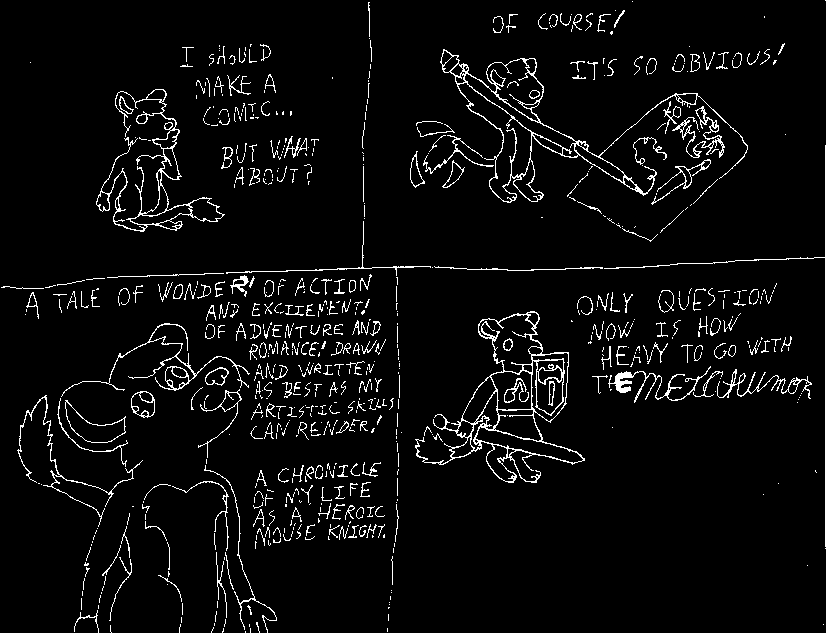 I SHOULD
MAKE A
COMIC...
BUT WHAT
ABOUT?
OF COURSE!
IT'S SO OBVIOUS!
A TALE OF WONDER! OF ACTION
AND EXCIIEMENT!
OF ADVENTURE AND
ROMANCE! DRAWN
AND WRITTEN
AS BEST AS MY
ARTISTIC SKILLS
CAN RENDER!
A CHRONICLE
OF MY LIFE
AS A HEROIC
MOUSE KNIGHT.
ONLY QUESTION
NOW IS HOW
HEAVY TO GO WITH
THE METAHUMOR